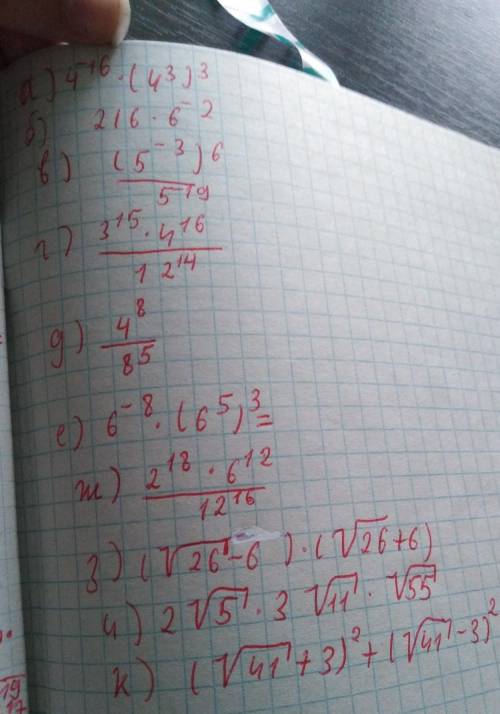 а) 4^-16 · (4^3)^3
б) 216 · 6^-2
в) (5^-3)^6 / 5^-19
г) 3^15 · 4^16 / 12^14
д) 4^8 / 8^5
е) 6^-8 · (6^5)^3 =
ж) 2^18 · 6^12 / 12^16
з) (√26 - 6) · (√26 + 6)
и) 2√5 · 3√11 · √55
к) (√41 + 3)^2 + (√41 - 3)^2
19
17